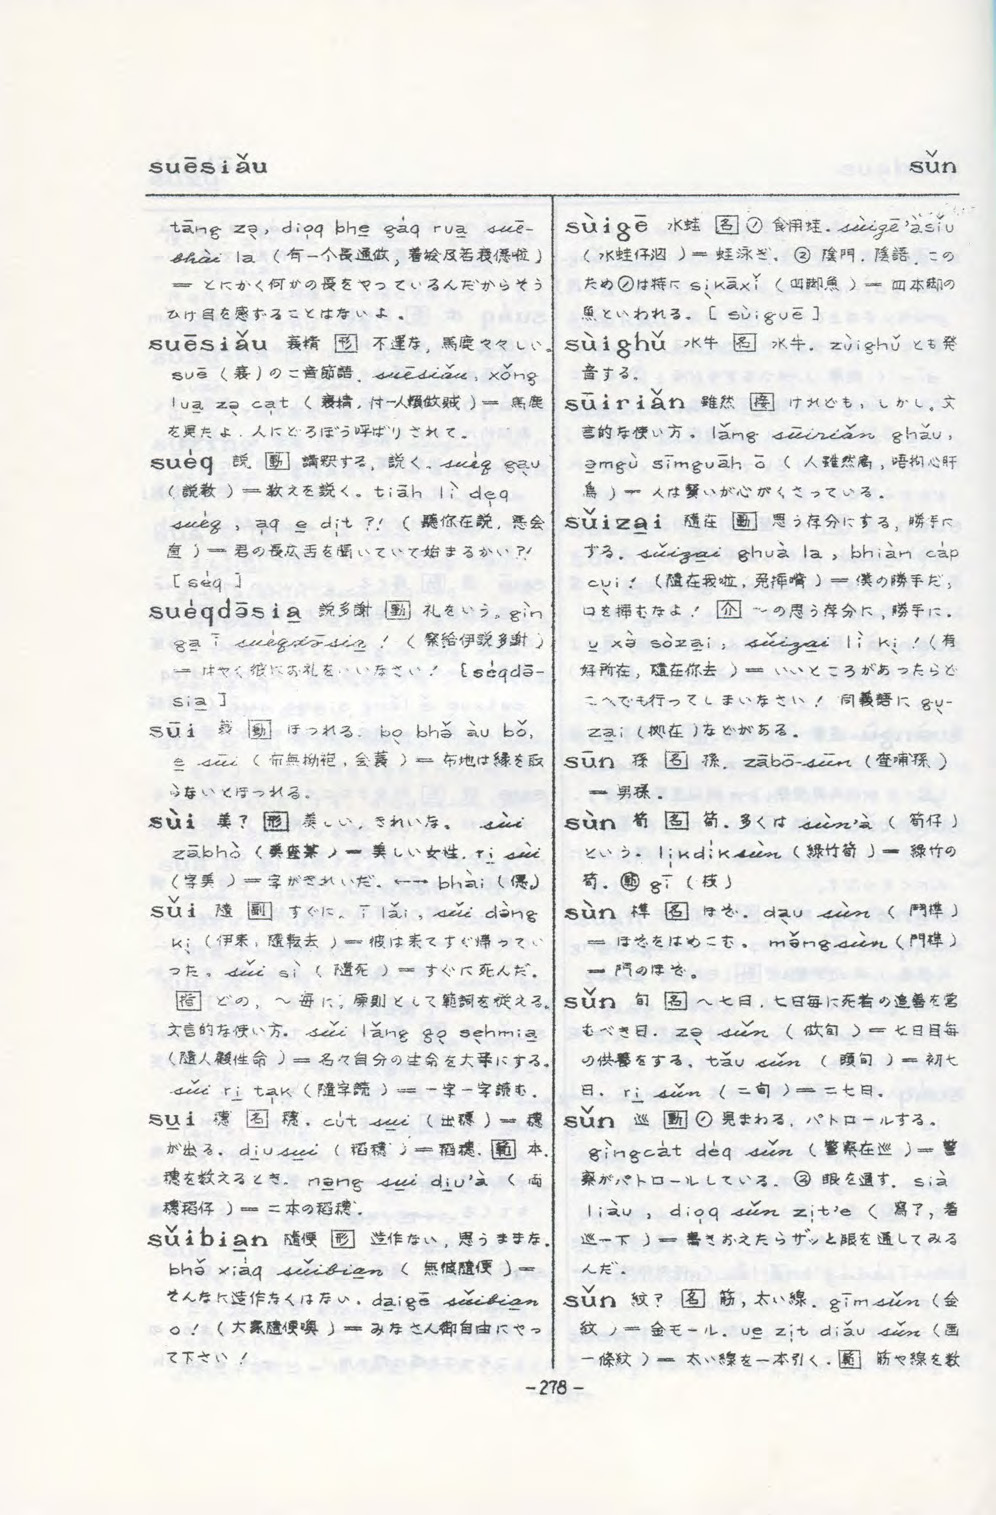 suēsiǎu
sǔn
tāng zə̣, diọq bhẹ gáq rua̱ suē-
bhài la (有一个長通做，着繪反若衰僫啦)
＝とにかく何かの長をやっているんだからそう
ひけ目を感ずることはないよ。
suēsiǎu 衰精 [形] 不運な，馬鹿々々しい。
suē (衰)の二音節語. suēsiǎu, xǒng
lua̱ zə̣ cạt (衰精，付人賴做賊)＝馬鹿
を見たよ，人にどろぼう呼ばりされて。
suéq 説. [動] 講釈する，説く. suéq gạu
(説教)＝教えを説く。tiāh lì dẹq
suéq, ạq e̱ dịt ?! (聽你在説，悪会
直)＝君の長広舌を聞いていて始まるかい?!
[séq]
suéqdōsia̱ 説多謝 [動] 礼をいう。gìn
ga̱ ī suéqdōsia̱! (緊給伊説多謝)
＝はやく彼にお礼をいいなさい! [séqdə̄-
sia̱]
sūi [動] ほつれる. bọ bhǒ àu bǒ,
e̱ sūi (布無拗袍，会蓑)＝布地は縁を取
らないとほつれる。
sùi 美? [形] 美しい，きれいな。sùi
zābhò (美査某)＝美しい女性. ri̱ sùi
(字美)＝字がきれいだ. ←→ bhài (僫)
sǔi 隨 [副] すぐに. ī lǎi, sǔi dòng
kị (伊来，隨転去)＝彼は来てすぐ帰ってい
った。sǔi sì (隨死)＝すぐに死んだ。
[指] どの，〜毎に，原則として範詞を従える。
文言的な使い方. sǔi lǎng gọ sẹhmia̱
(隨人顧性命)＝各々自分の生命を大事にする。
sǔi ri̱ tạk (隨字読)＝一字一字読む.
sui̱ 穗 [名] 穗. cút sui̱ (出穗)＝穗
が出る. di̱usui̱ (稻穗)＝稻穗. [範] 本.
穗を数えるとき. nə̱ng sui̱ di̱u'à (両
穗稻仔)＝二本の稻穗.
sǔibia̱n 隨便 [形] 造作ない，思うままな.
bhǒ xiáq sǔibia̱n (無彼隨便)＝
そんなに造作なくはない. da̱igē sǔibia̱n
o! (大家隨便噢)＝みなさん御自由にやっ
て下さい!
sùigē 水蛙 [名] ① 食用蛙. sùigē'àsiǔ
(水蛙仔泅)＝蛙泳ぎ. ② 陰門. 陰語. この
ため①は特に sịkāxǐ (四脚魚)＝四本脚の
魚といわれる. [sùiguē]
sùighǔ 水牛 [名] 水牛. zùighǔ とも発
音する.
sūiriǎn 雖然 [接] けれども，しかし。文
言的な使い方. lǎng sūiriǎn ghǎu,
ə̱mgù sīmguāh ō (人雖然𠢕，唔拘心肝
烏)＝人は賢いが心がくさっている.
sǔiza̱i 隨在 [動] 思う存分にする，勝手に
する. sǔiza̱i ghuà la, bhiàn cáp
cụi! (隨在我啦，免揷嘴)＝僕の勝手だ，
口を挿むなよ! [介] 〜の思う存分に，勝手に.
u̱ xə̀ sòza̱i, sǔiza̱i lì kị! (有
好所在，隨在你去)＝いいところがあったらど
こへでも行ってしまいなさい! 同義語に gụ-
za̱i (拠在)などがある.
sūn 孫 [名] 孫. zābō-sūn (査埔孫)
＝男孫.
sùn 筍 [名] 筍. 多くは sùn'à (筍仔)
という. li̍kdi̍ksùn (綠竹筍)＝綠竹の
筍. [範] gī (枝)
sùn 榫 [名] ほぞ. dạu sùn (鬥榫)
＝ほぞをはめこむ. mə̌ngsùn (門榫)
＝門のほぞ.
sǔn 旬 [名] 〜七日. 七日毎に死者の追善を営
むべき日. zə̣ sǔn (做旬)＝七日目毎
の供養をする. tǎu sǔn (頭旬)＝初七
日. ri̱ sǔn (二旬)＝二七日.
sǔn 巡 [動] ① 見まわる，パトロールする.
gìngcát dẹ̄q sǔn (警察在巡)＝警
察がパトロールしている. ② 眼を通す. sià
liàu, diọq sǔn zi̍t'e (寫了，着
巡一下)＝書きおえたらザッと眼を通してみる
んだ.
sǔn 紋? [名] 筋，太い線. gīmsǔn (金
紋)＝金モール. ue̱ zi̍t diǎu sǔn (画
一條紋)＝太い線を一本引く. [範] 筋や線を数
-278-